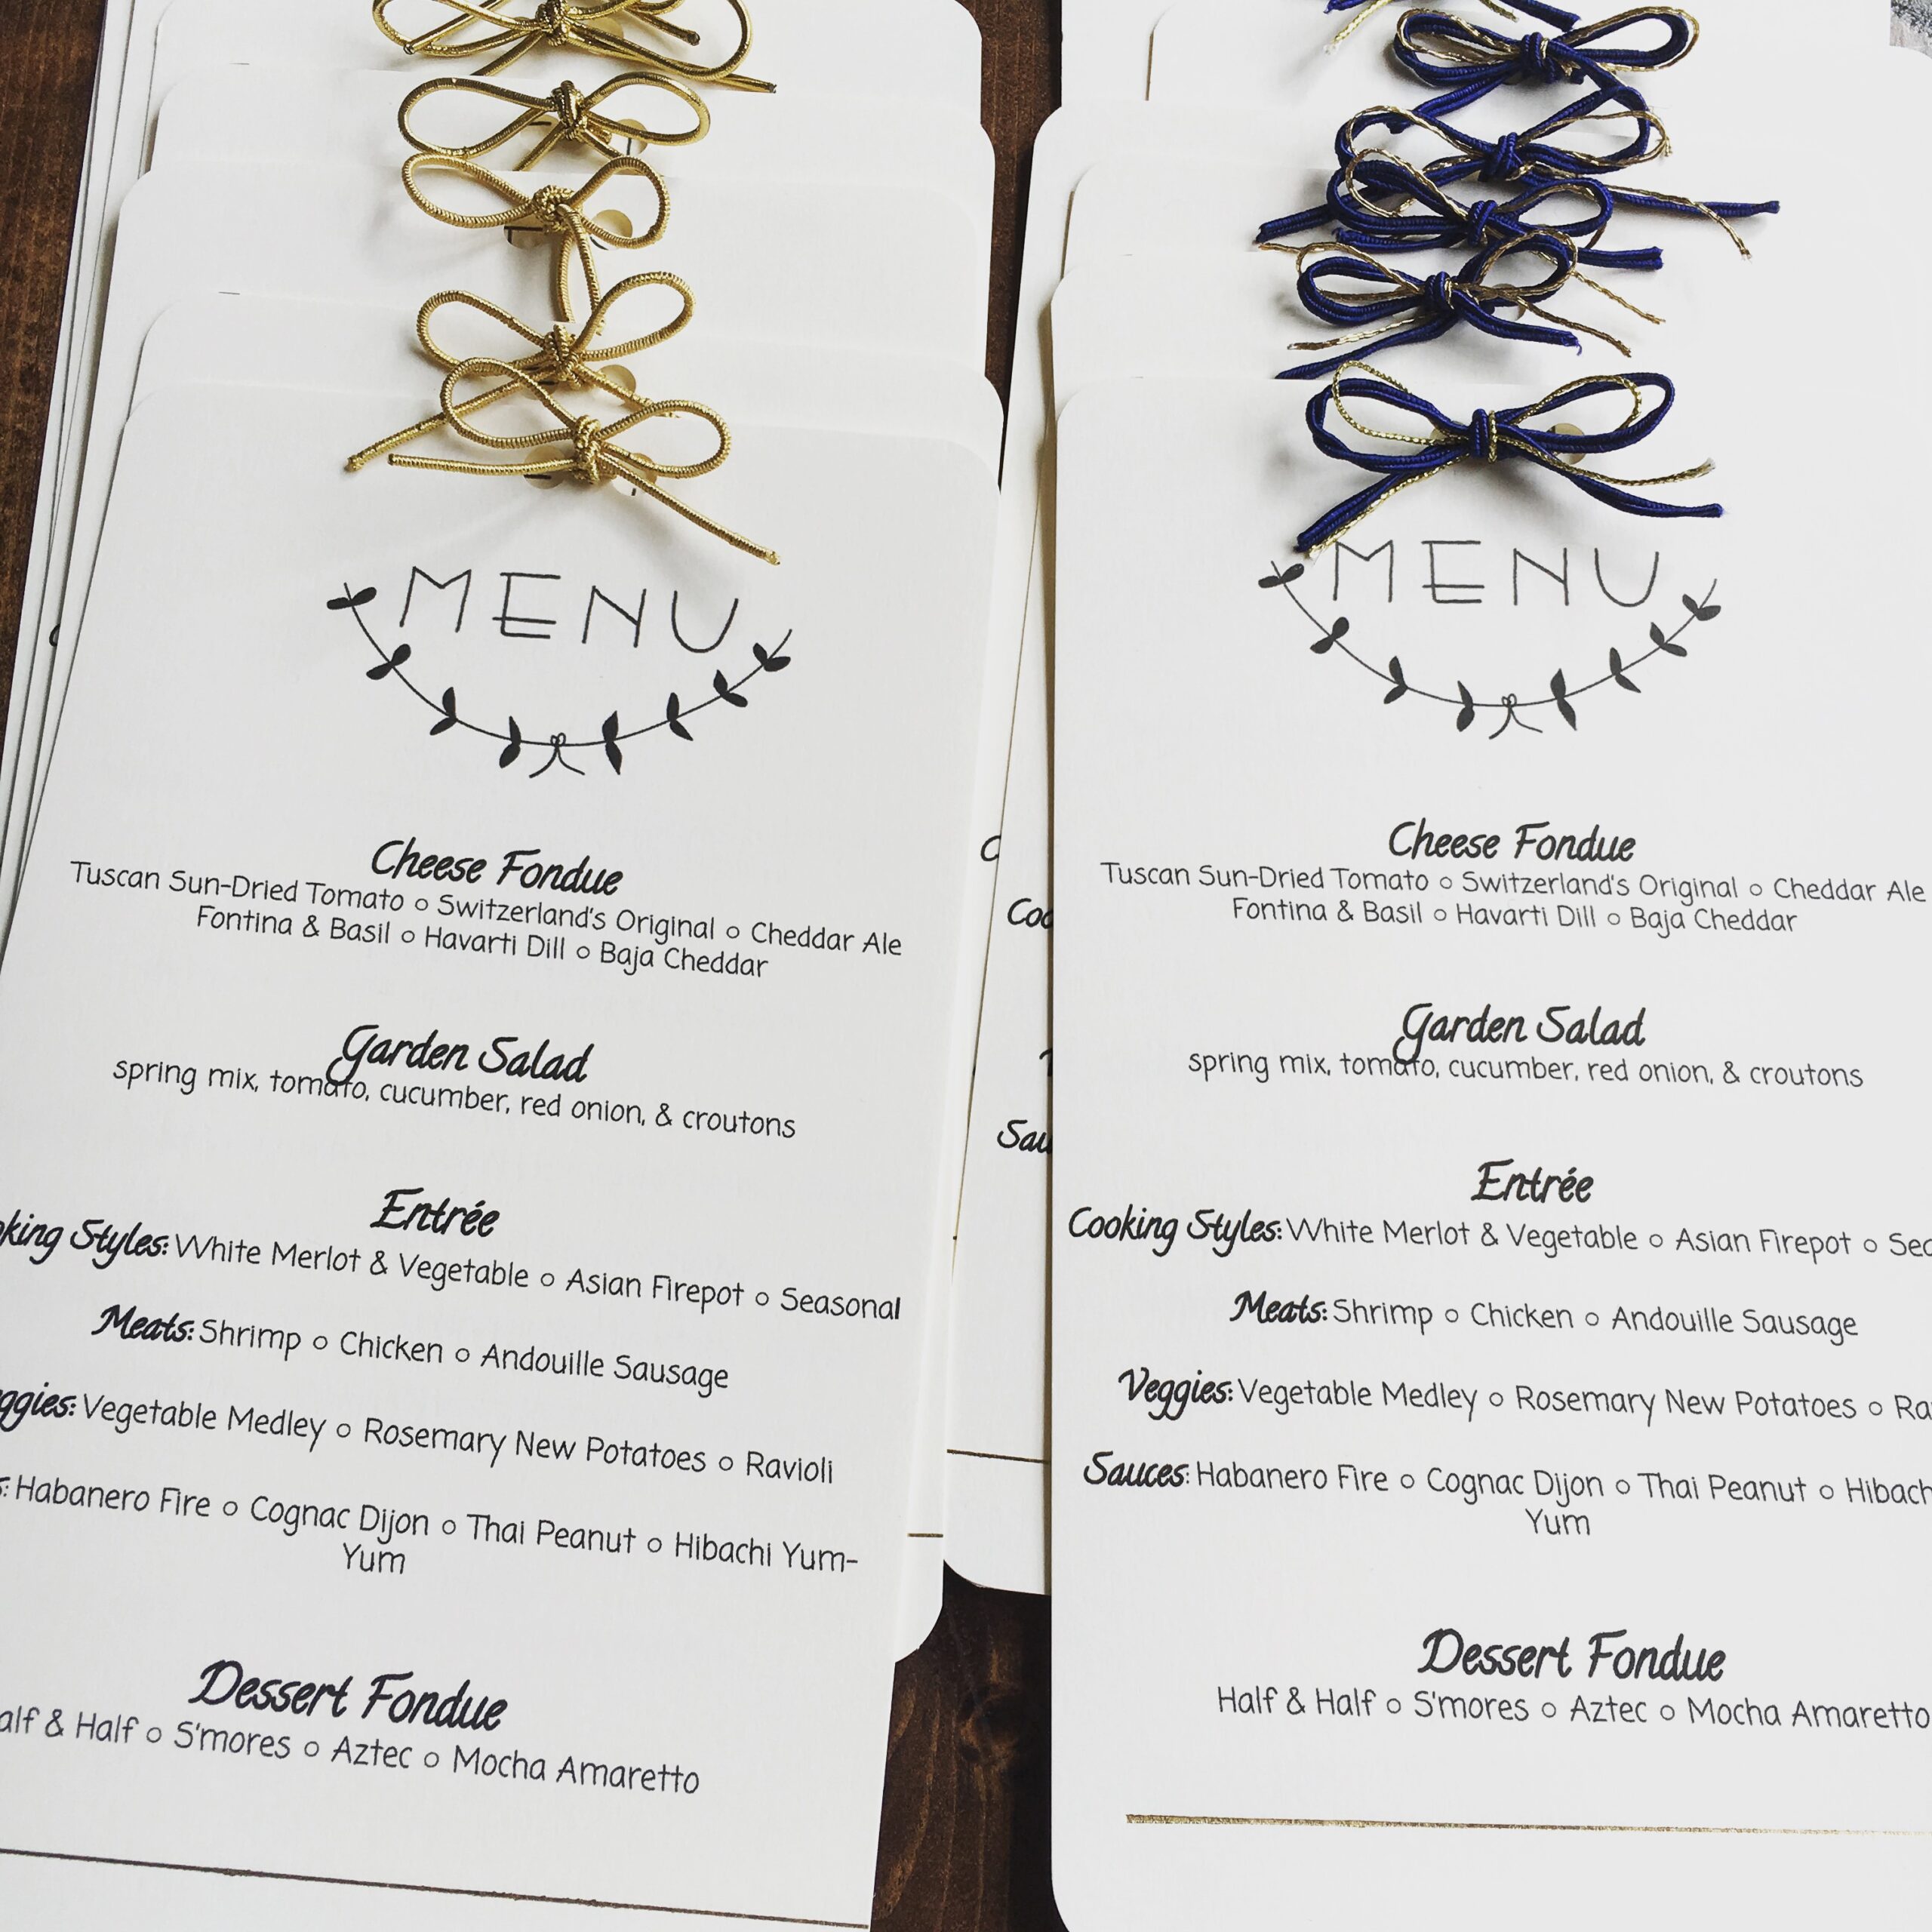 MENU
Cheese Fondue
Tuscan Sun-Dried Tomato o Switzerland's Original o Cheddar Ale
Fontina & Basil o Havarti Dill o Baja Cheddar
Garden Salad
spring mix, tomato, cucumber, red onion, & croutons
Entrée
king Styles: White Merlot & Vegetable o Asian Firepot o Seasonal
Meats: Shrimp o Chicken o Andouille Sausage
ggies: Vegetable Medley o Rosemary New Potatoes o Ravioli
s: Habanero Fire o Cognac Dijon o Thai Peanut o Hibachi Yum-
Yum
Dessert Fondue
alf & Half o S'mores o Aztec o Mocha Amaretto
C
Coo
Sau
MENU
Cheese Fondue
Tuscan Sun-Dried Tomato o Switzerland's Original o Cheddar Ale
Fontina & Basil o Havarti Dill o Baja Cheddar
Garden Salad
spring mix, tomato, cucumber, red onion, & croutons
Entrée
Cooking Styles: White Merlot & Vegetable o Asian Firepot o Sea
Meats: Shrimp o Chicken o Andouille Sausage
Veggies: Vegetable Medley o Rosemary New Potatoes o Ra
Sauces: Habanero Fire o Cognac Dijon o Thai Peanut o Hibach
Yum
Dessert Fondue
Half & Half o S'mores o Aztec o Mocha Amaretto